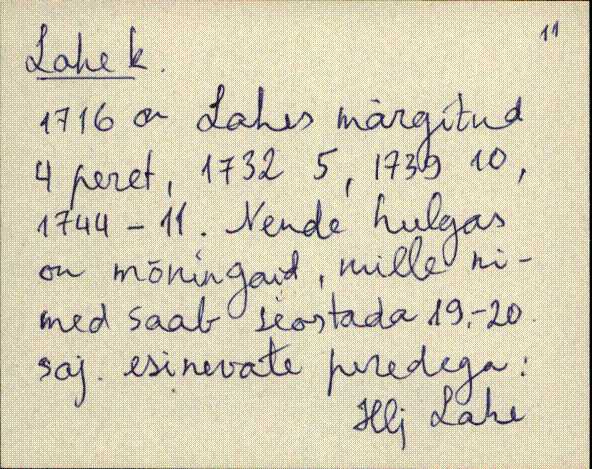 11
Lahe k.
1716 on Lahes märgitud
4 peret, 1732 5, 1739 10,
1744 - 11. Nende hulgas
on mõningaid, mille ni-
med saab seostada 19.-20.
saj. esinevate peredega:
Hlj Lahe